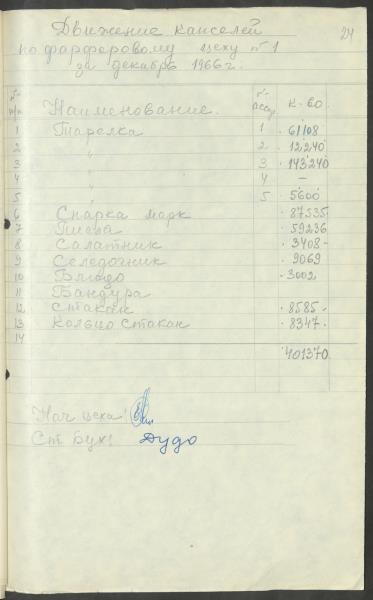 24
Движение капселей
по фарфоровому цеху №1
за декабрь 1966 г.
№ п/п Наименование. №- ассор. к-во.
1 Тарелка 1 61108
2 " 2. 12240
3 " 3 143240
4 " 4 —
5 " 5 5600
6 Спарка марк 87535
7 59236
8 Салатник 3408-
9 Селедочник 9069
10 Блюдо 3002
11 Бандура
12 Стакан 8585-
13 Кольцо стакан 8347.
14
401370
Нач цеха:
Ст. Бух: Дудо